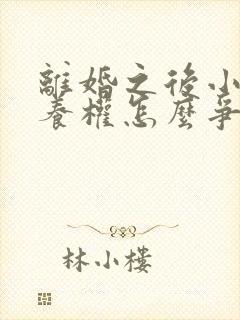 離婚之後小
養權怎麼爭
林小樓